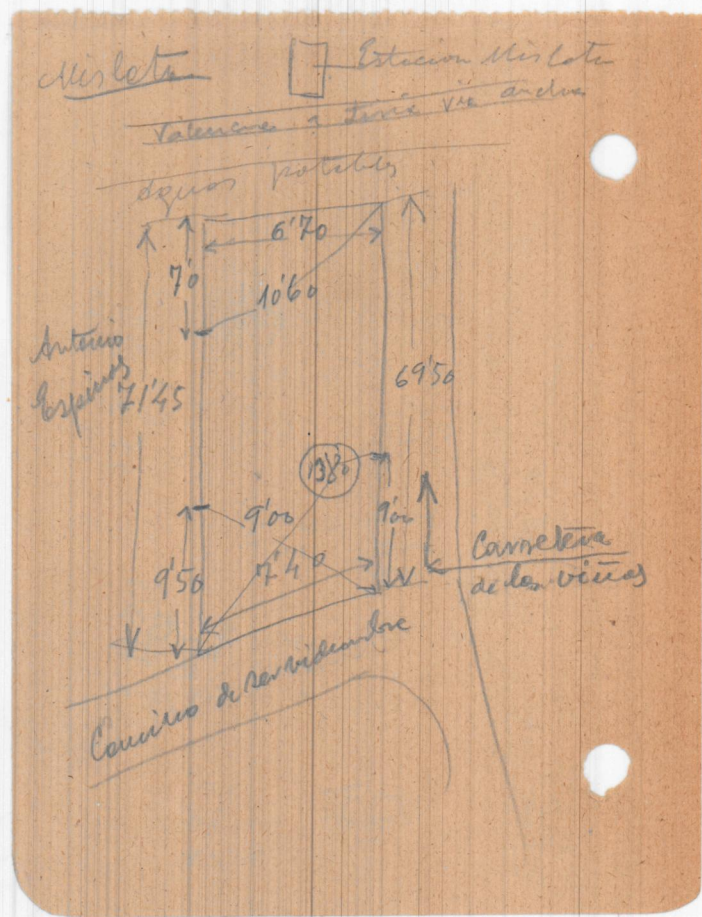 Mislata
Estacion Mislata
Valencia a Liria Via ancha
Aguas potables
6'70
7'0
10'60
Antonio
Espinos
71'45
69'50
13'80
9'00
9'00
9'50
7'40
Carretera
de las viñas
Camino de servidumbre